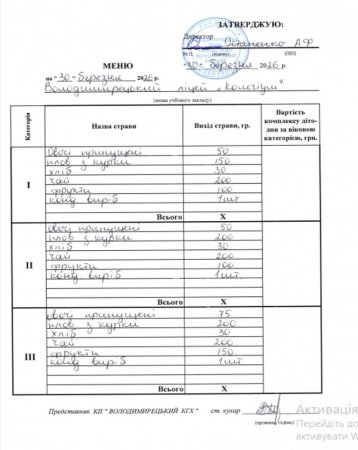 ЗАТВЕРДЖУЮ:
Директор
Остапенко А Ф
М.П. (підпис) (ПІП)
МЕНЮ
"30" березня 2026р.
на "30" березня 2026р.
Володимирецький ліцей „Колегіум"
(назва учбового закладу)
Категорія Назва страви Вихід страви, гр. Вартість комплексу діто-дня за віковою категорією, грн.
I
овочі припущені 50
плов з курки 150
хліб 30
чай 200
фрукти 100
конд. виріб 1шт
Всього X
II
овочі припущені 50
плов з курки 200
хліб 30
чай 200
фрукти 100
конд. виріб 1шт.
Всього X
III
овочі припущені 75
плов з курки 200
хліб 30
чай 200
фрукти 150
конд виріб 1шт
Всього X
Представник КП " ВОЛОДИМИРЕЦЬКИЙ КГХ " ст. кухар
(прізвище, підпис)
Активація
Перейдіть до
активувати W